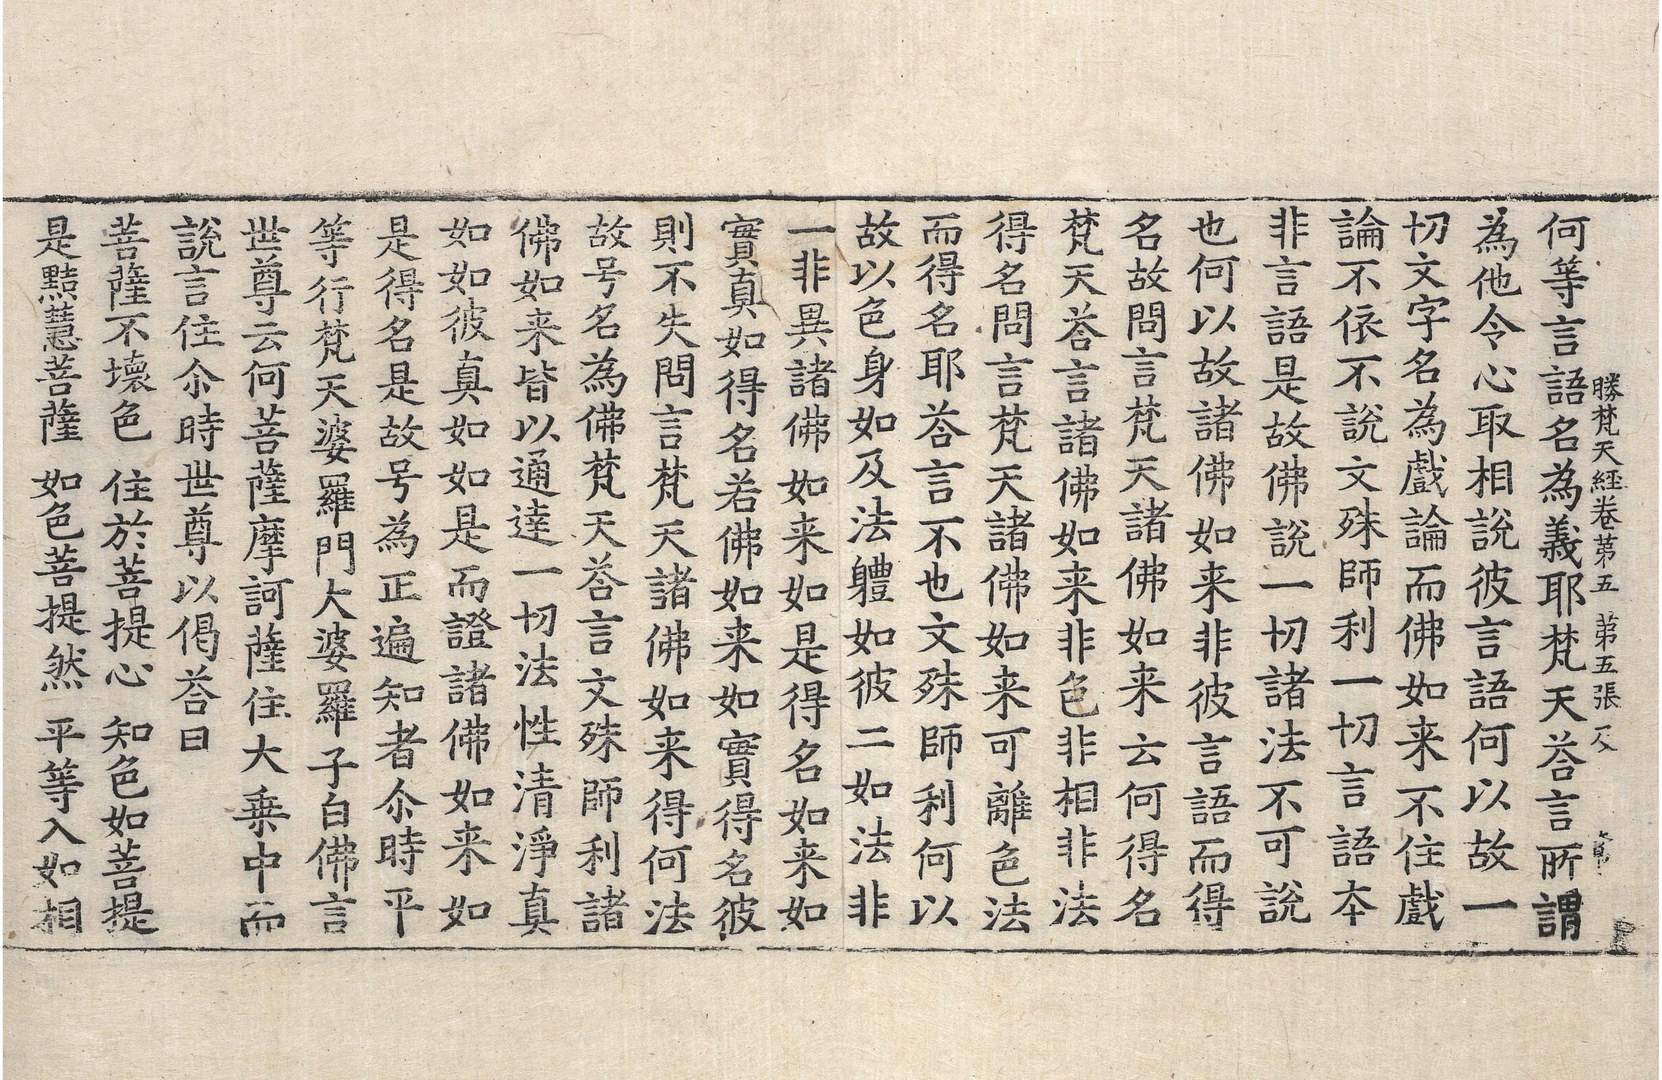 勝梵天經卷第五 第五張
何等言語名為義耶梵天荅言所謂
為他令心取相說彼言語何以故一
切文字名為戲論而佛如来不住戲
論不依不說文殊師利一切言語本
非言語是故佛說一切諸法不可說
也何以故諸佛如来非彼言語而得
名故問言梵天諸佛如来云何得名
梵天荅言諸佛如来非色非相非法
得名問言梵天諸佛如来可離色法
而得名耶荅言不也文殊師利何以
故以色身如及法軆如彼二如法非
一非異諸佛如来如是得名如来如
實真如得名若佛如来如實得名彼
則不失問言梵天諸佛如来得何法
故号名為佛梵天荅言文殊師利諸
佛如来皆以通達一切法性清淨真
如如彼真如如是而證諸佛如来如
是得名是故号為正遍知者尒時平
等行梵天婆羅門大婆羅子白佛言
世尊云何菩薩摩訶薩住大乗中而
說言住尒時世尊以偈荅曰
菩薩不壞色 住於菩提心 知色如菩提
是黠慧菩薩 如色菩提然 平等入如相